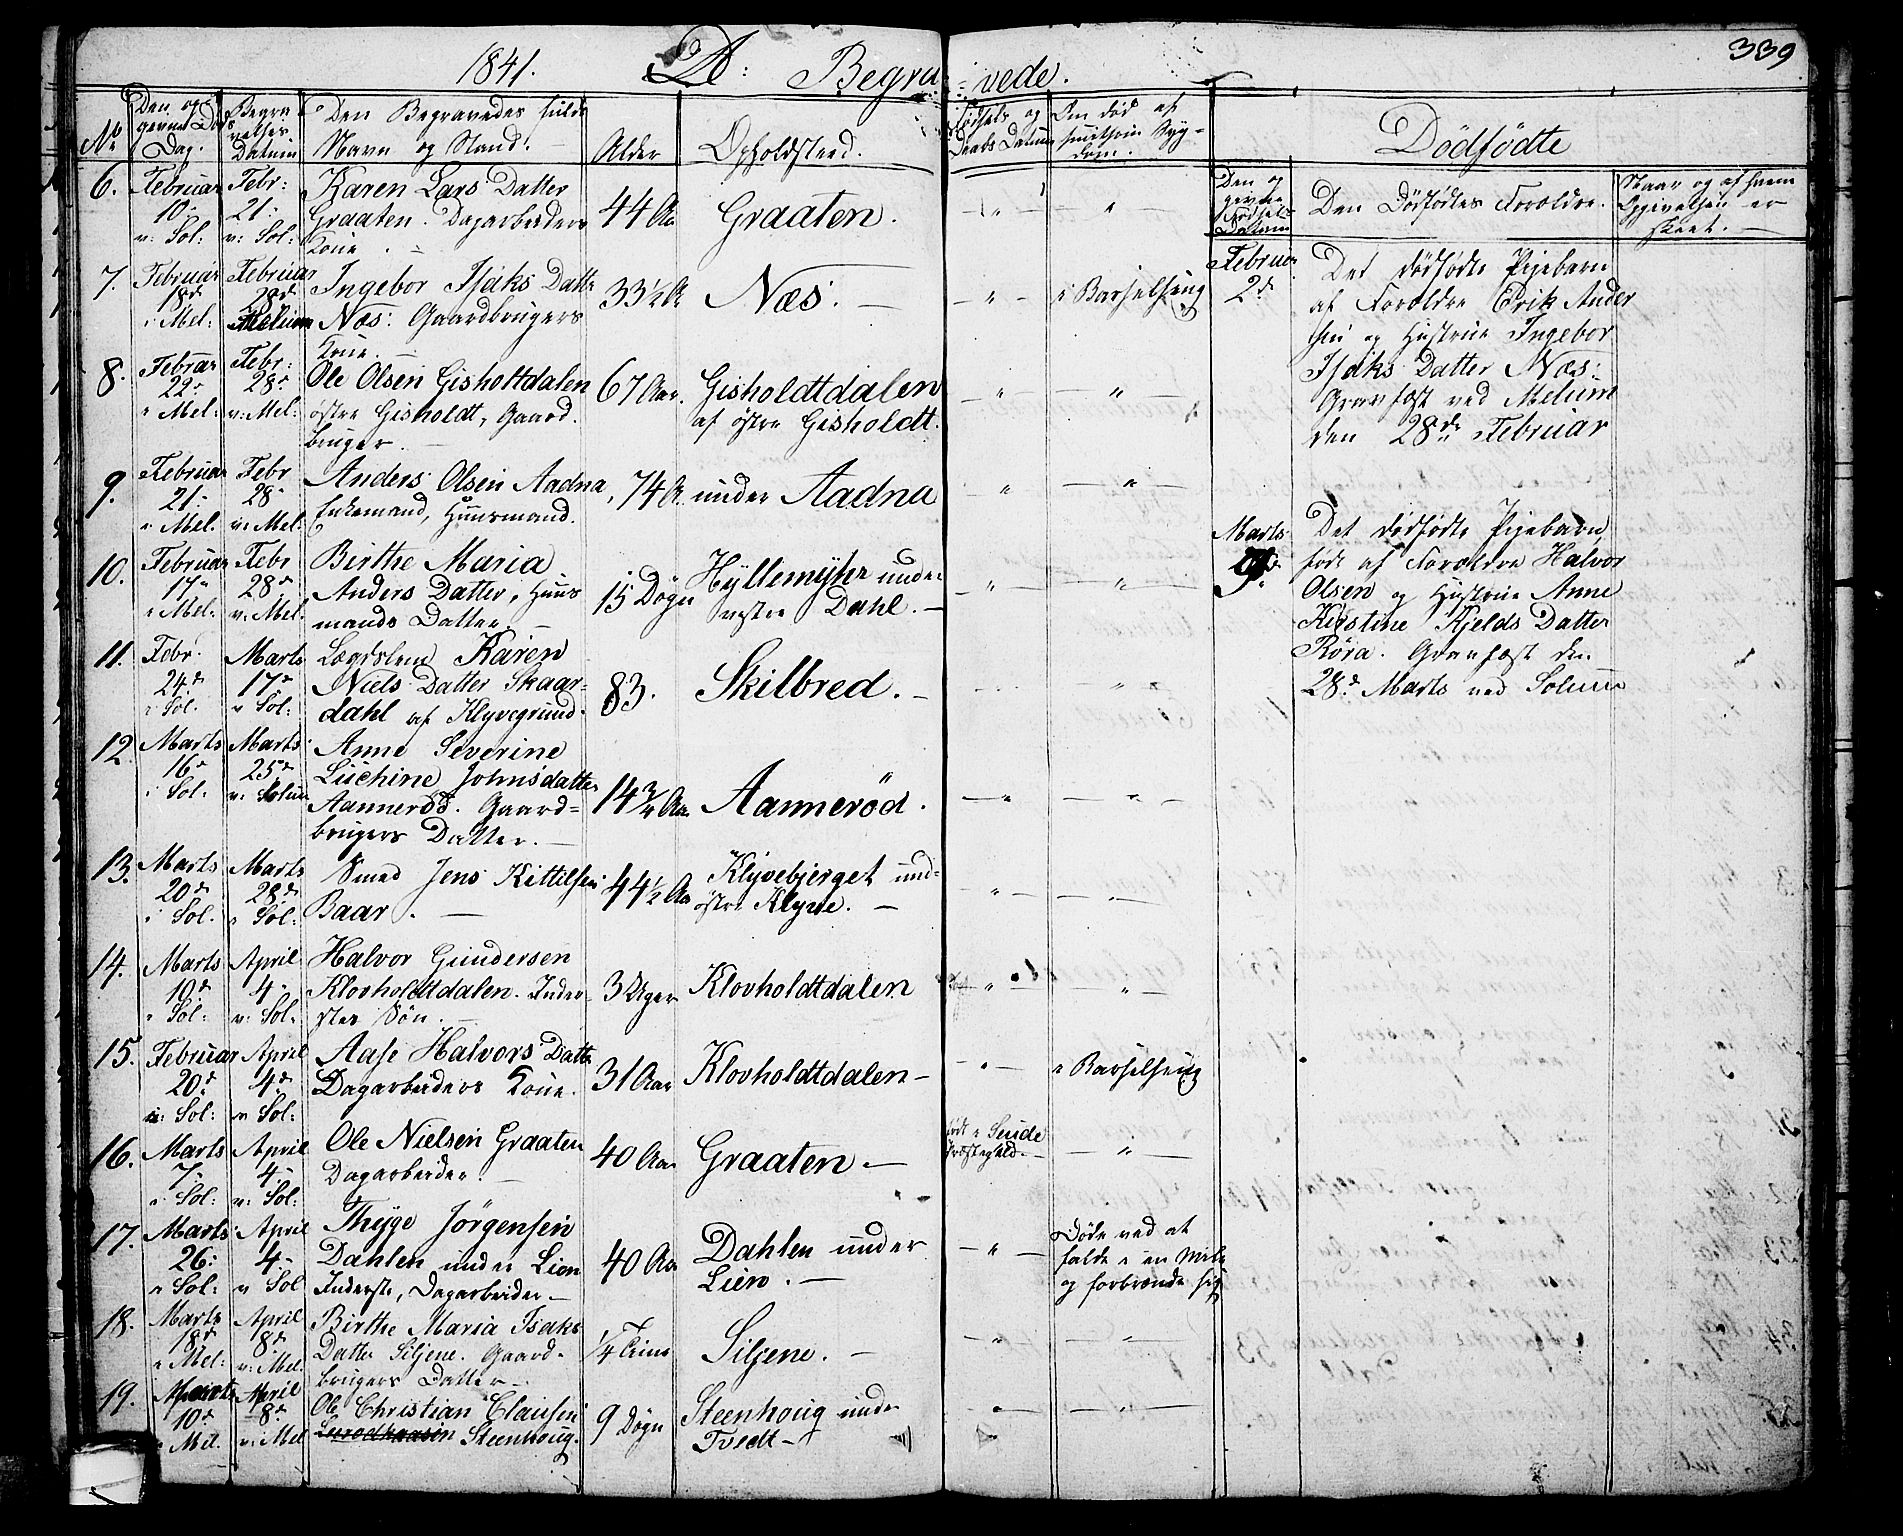 1841. D: Begra-
-vede. 339
No
Den op
givne Døds
Dag.
Begra
velses
Datum
Den Begravedes fulde
Navn og Stand:
Alder
Opholdsted.
Fødsels og
Daabs Datum
Om død af
smitsom Syg-
dom.
Dødfødte
Den op
givne
Fødsels
Datum
Den Dødfødtes Forældre.
Naar og af hvem
Opgivelsen er
skeet.
6. Februar
10
v: Sol:
Febr:
21:
v: Sol:
Karen Lars Datter
Graaten. Dagarbeiders
Kone.
44 Aar
Graaten.
7. Februar
18d
i Mel:
Februar
28d
Melum
Ingebor Isaks Datter
Næs: Gaardbrugers
Kone.
33 1/2 A
Næs.
i Barselseng
8. Februar
22
i Mel:
Febr:
28
v: Mel:
Ole Olsen Gisholtdalen
østre Gisholdt, Gaard
bruger.
67 Aar.
Gisholdtdalen
af østre Gisholdt.
9. Februar
21
i Mel.
Febr
28
v: Mel:
Anders Olsen Aadna,
Enkemand, Huusmand.
74 A.
under Aadna
10. Februar
17
i Mel:
Febr
28
v: Mel:
Birthe Maria
Anders Datter, Huus
mands Datter.
15 Døgn
Hyllemyhr under
vestre Dahl.
11. Febr.
24d
i Sol.
Marts
17
v Sol:
Lægdslem Karen
Niels Datter Skaar-
dahl af Klyvegrund.
83.
Skilbred.
12. Marts
16
i Sol.
Marts
25
v: Solum
Anne Severine
Luchine Johnsdatter
Aannerød. Gaard-
brugers Datter.
14 3/4 Aar
Aannerød.
13. Marts
20d
i Sol.
Marts
28d
v Sol:
Smed Jens Kittilsen
Baar.
44 1/2 Aar
Klyvebjerget und.
østre Klyve.
14. Marts
19d
i Sol:
April
4
v: Sol.
Halvor Gundersen
Klovholdtdalen. Inder-
stes Søn.
3 Uger
Klovholdtdalen
15. Februar
20d
i: Sol:
April
4d
v Sol:
Aase Halvors Datter
Dagarbeiders Kone.
31 Aar
Klovholdtdalen
i Barselseng
16. Marts
7
i Sol:
April
4
v: Sol:
Ole Nielsen Graaten
Dagarbeider.
40 Aar
Graaten
født i Seude
Præstegield.
17. Marts
26
i Sol:
April
4
v Sol
Thyge Jørgensen
Dahlen under Lien
Inderste, Dagarbeider
40 Aar
Dahlen under
Lien.
Døde ved at
falde i en Mile
og forbrænde sig
18. Marts
18d
i Mel:
April
8d
v: Mel.
Birthe Maria Isaks
Datter Siljene. Gaard-
brugers Datter
1/4 Time
Siljene.
19. Marts
10d
i Mel.
April
8d
v: Mel
Ole Christian Clausen
Steenhoug.
9 Døgn
Steenhoug under
Tvedt
Februar
2d
Det dødfødte Pigebarn
af Forældre Erik Ander
sen og Hustrue Ingebor
Isaks Datter Næs:
Gravfæst ved Melum
den 28de Februar
Marts
9
Det dødfødte Pigebarn
født af Forældre Halvor
Olsen og Hustrue Anne
Kirstine Kjelds Datter
Röra. Gravfæst den
28d Marts ved Solum